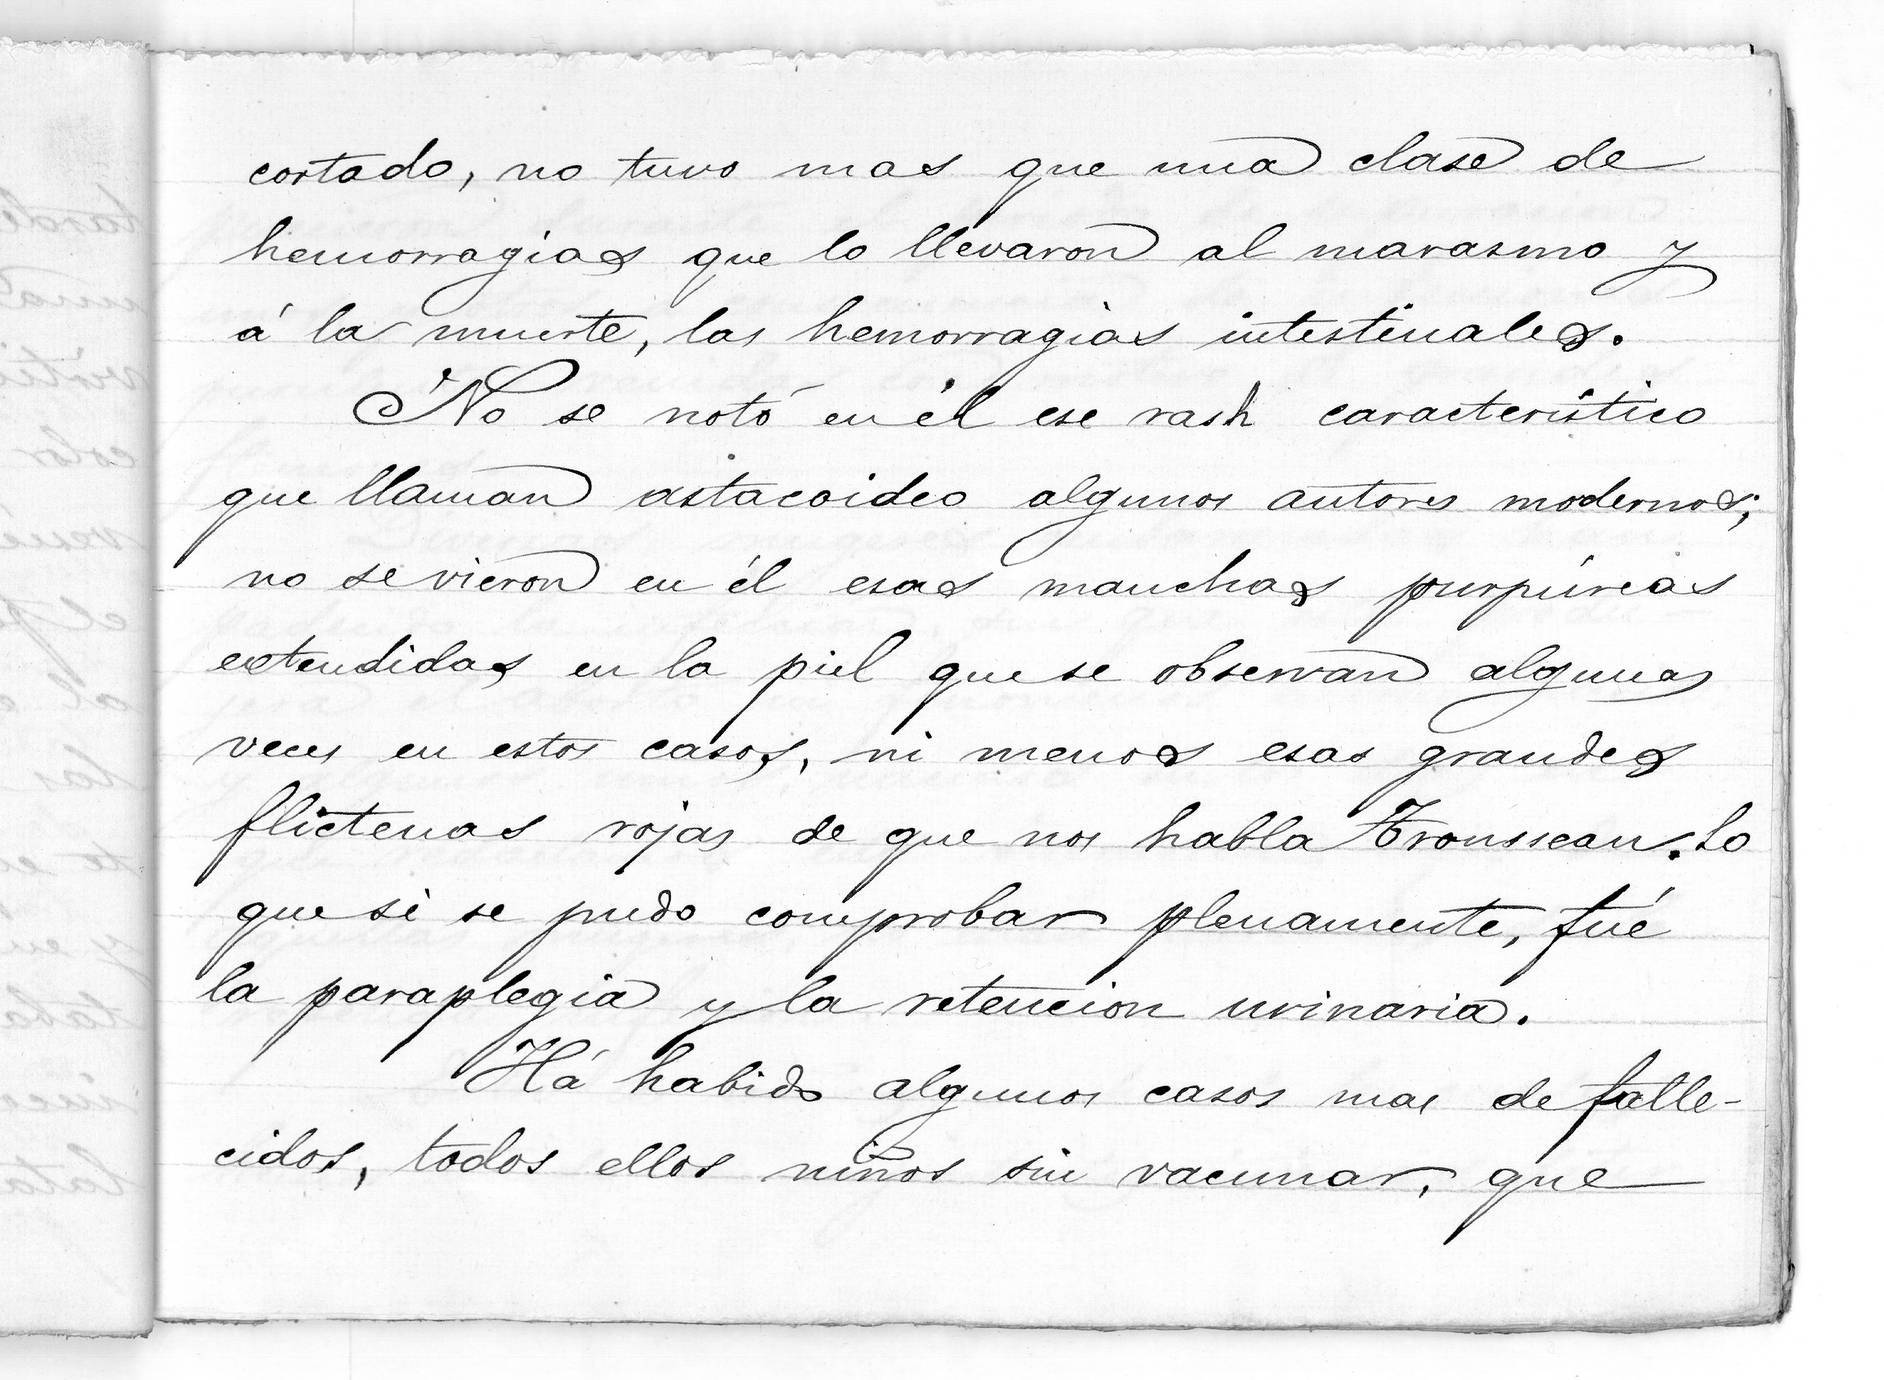 cortado, no tuvo mas que una clase de
hemorragias que lo llevaron al marasmo y
á la muerte, las hemorragias intestinales.
No se notó en él ese rash característico
que llaman astacoideo algunos autores modernos;
no se vieron en él esas manchas purpúreas
extendidas en la piel que se observan algunas
veces en estos casos, ni menos esas grandes
flictenas rojas de que nos habla Trousseau. Lo
que si se pudo comprobar plenamente, fué
la paraplegia y la retencion urinaria.
Há habido algunos casos mas de falle-
cidos, todos ellos niños sin vacunar, que